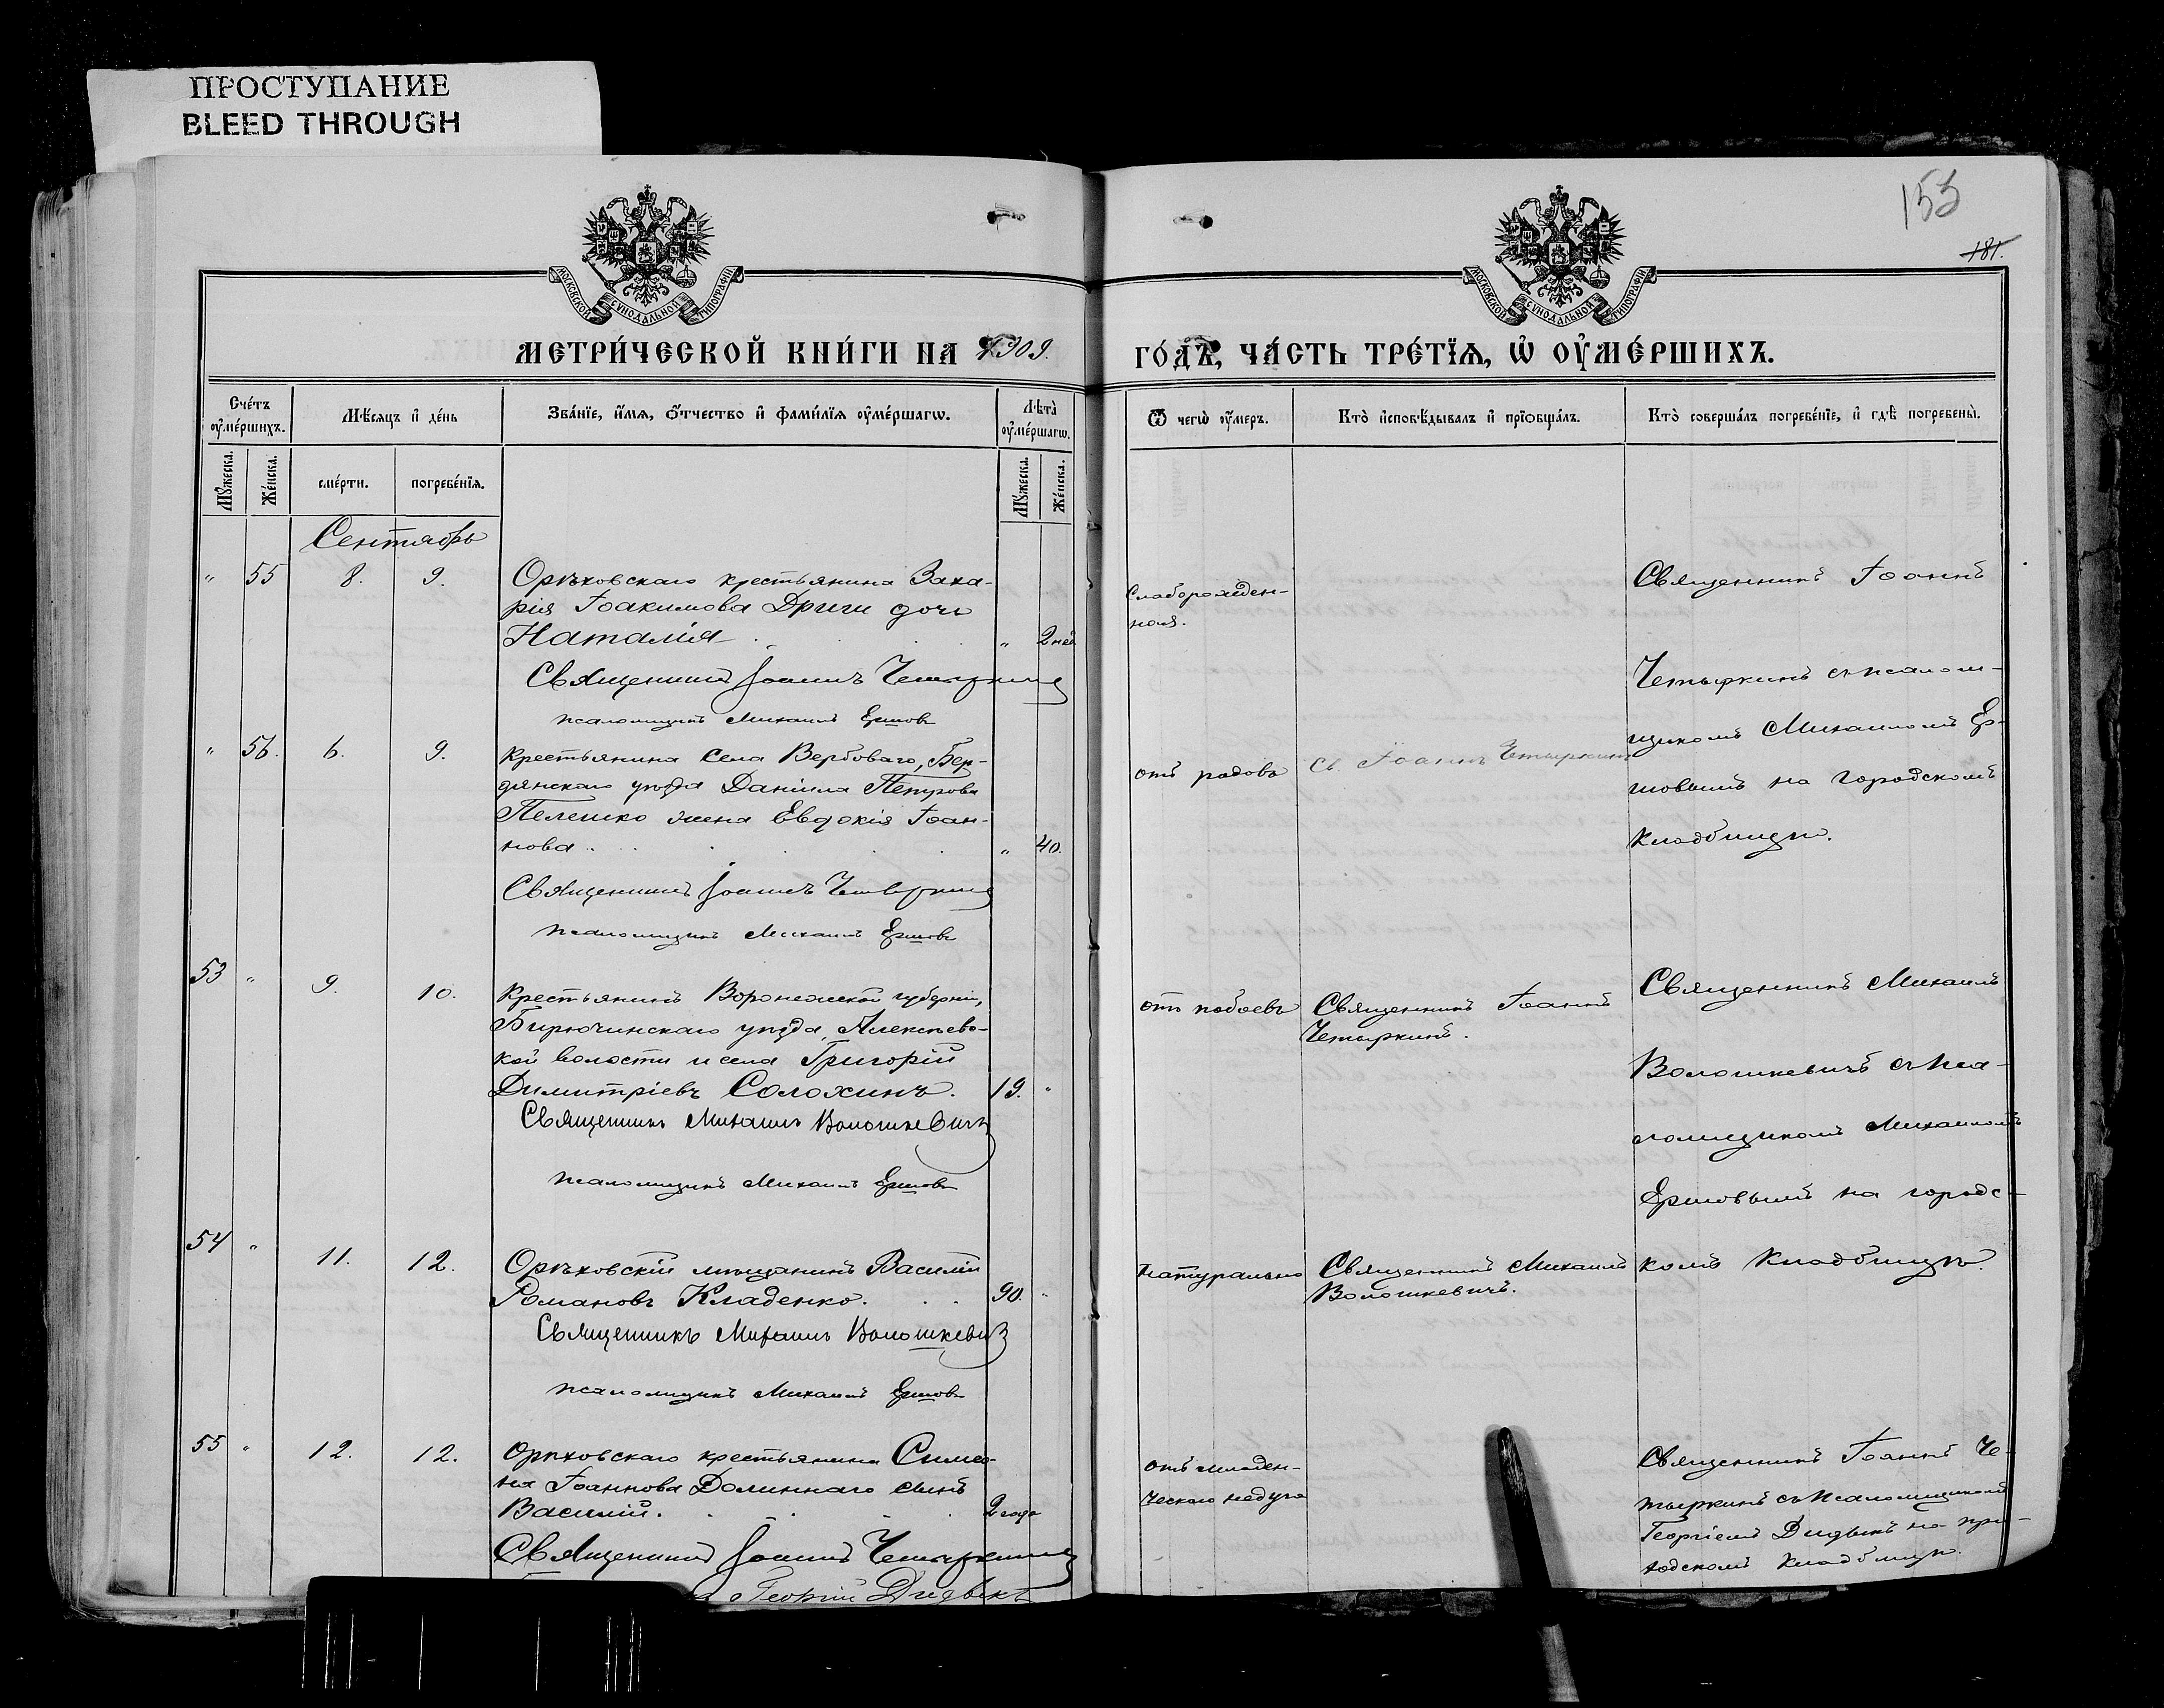 ПРОСТУПАНИЕ
BLEED THROUGH
153
181.
МОСКОВСКОЙ СУНОДАЛЬНОЙ ТИПОГРАФІИ
МОСКОВСКОЙ СУНОДАЛЬНОЙ ТИПОГРАФІИ
МЕТРИ́ЧЕСКОЙ КНИ́ГИ НА 1909.
ГО́ДЪ, ЧА́СТЬ ТРЕ́ТІЯ, Ѡ ОУМЕ́РШИХЪ.
Сче́тъ оуме́ршихъ.
Мѣсяцъ и де́нь
Зва́ніе, и́мя, о́тчество и фами́лія оуме́ршагѡ.
Лѣта̀ оуме́ршагѡ.
Ѿ чегѡ̀ оу́меръ.
Кто̀ исповѣ́дывалъ и пріѡбща́лъ.
Кто̀ соверша́лъ погребе́ніе, и гдѣ̀ погребены̀.
Му́жеска.
Же́нска.
сме́рти.
погребе́нія.
Му́жеска.
Же́нска.
Сентябрь
" 55 8. 9. Орѣховскаго крестьянина Заха-
рія Іоакимова Дриги дочь
Наталія " 2 дней
Священникъ Іоаннъ Четыркинъ
псаломщикъ Михаилъ Ершовъ
Слаборожден-
ная.
Священникъ Іоаннъ
Четыркинъ съ псалом-
щикомъ Михаиломъ Ер-
шовымъ на городскомъ
кладбищѣ.
" 56. 6. 9. Крестьянина села Вербоваго, Бер-
дянскаго уѣзда Даніила Петрова
Пелешко жена Евдокія Іоан-
нова " 40.
Священникъ Іоаннъ Четыркинъ
псаломщикъ Михаилъ Ершовъ
отъ родовъ
Св. Іоаннъ Четыркинъ
53 " 9. 10. Крестьянинъ Воронежской губерніи,
Бирючинскаго уѣзда, Алексѣевс-
кой волости и села Григорій
Димитріевъ Солохинъ. 19. "
Священникъ Михаилъ Волошкевичъ
псаломщикъ Михаилъ Ершовъ
отъ побоевъ
Священникъ Іоаннъ
Четыркинъ.
Священникъ Михаилъ
Волошкевичъ съ пса-
ломщикомъ Михаиломъ
Ершовымъ на городс-
комъ кладбищѣ.
54 " 11. 12. Орѣховскій мѣщанинъ Василій
Романовъ Кладенко. 90. "
Священникъ Михаилъ Волошкевичъ
псаломщикъ Михаилъ Ершовъ
натурально
Священникъ Михаилъ
Волошкевичъ.
55 " 12. 12. Орѣховскаго крестьянина Симео-
на Іоаннова Долиннаго сынъ
Василій. 2 года
Священникъ Іоаннъ Четыркинъ
Георгій Дидыкъ
отъ младен-
ческаго недуга
Священникъ Іоаннъ Че-
тыркинъ съ псаломщикомъ
Георгіемъ Дидыкъ на при-
ходскомъ кладбищѣ.